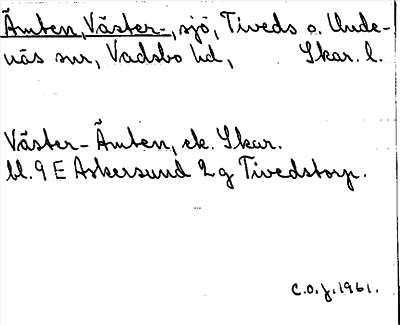 Ämten, Väster-, sjö, Tiveds o. Unde-
näs snr, Vadsbo hd, Skar. l.
Väster-Ämten, ek. Skar.
bl. 9 E Askersund 2 g Tivedstorp.
C.O.J. 1961.